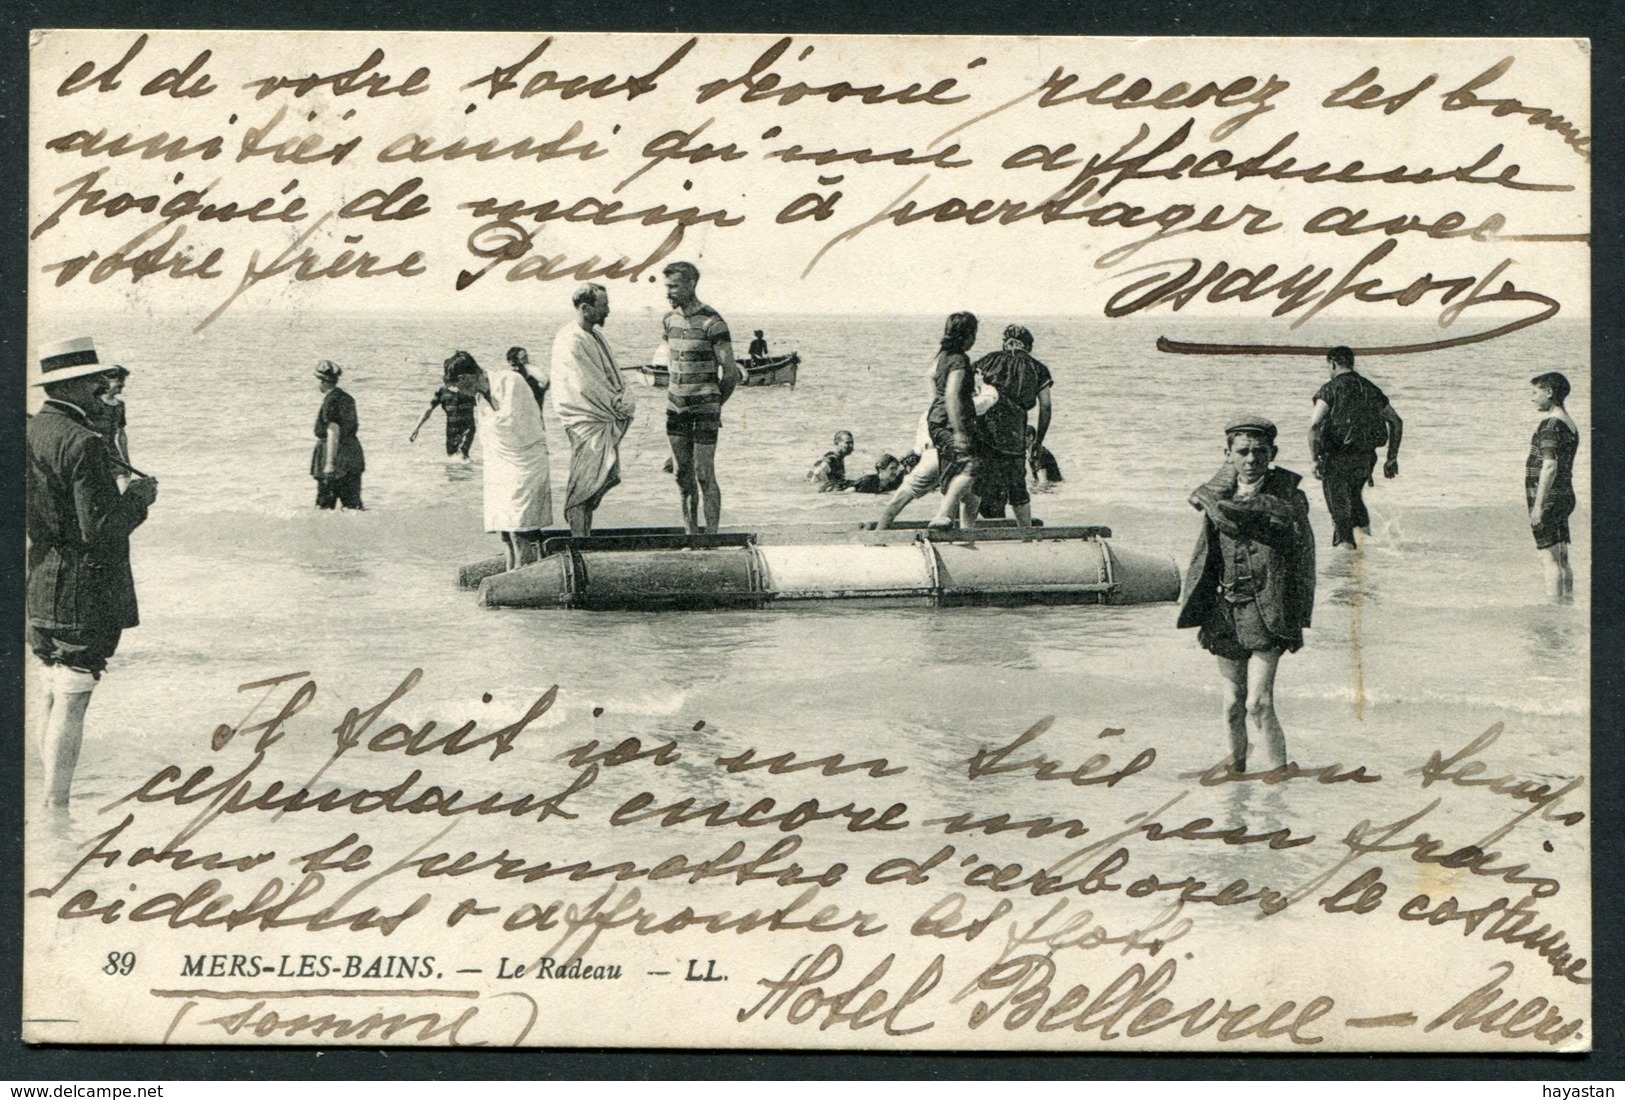 et de votre tout dévoué recevez les bonnes
amitiés ainsi qu'une affectueuse
poignée de main à partager avec
votre frère Paul.
Il fait ici un très bon temps
cependant encore un peu frais
pour se permettre d'arborer le costume
cidessus & affronter les flots.
89 MERS-LES-BAINS. — Le Radeau — LL.
(Somme)
Hotel Bellevue — Mers.
delcampe.net
hayastan